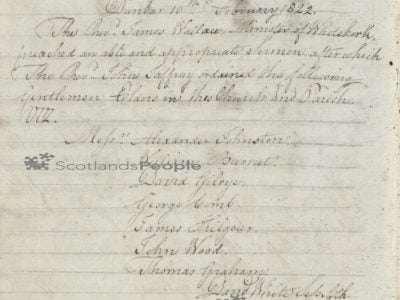 Dunbar 10th February 1822.
The Revd. James Wallace Minister of Whitekirk
preached an able and appropriate sermon after which
The Revd. John Jaffray ordained the following
Gentlemen Elders in this Church and Parish
Viz.
Messrs. Alexander Johnston
Burnet
ScotlandsPeople
David Gilrye
George Comb
James Kilgour
John Wood
Thomas Graham
David